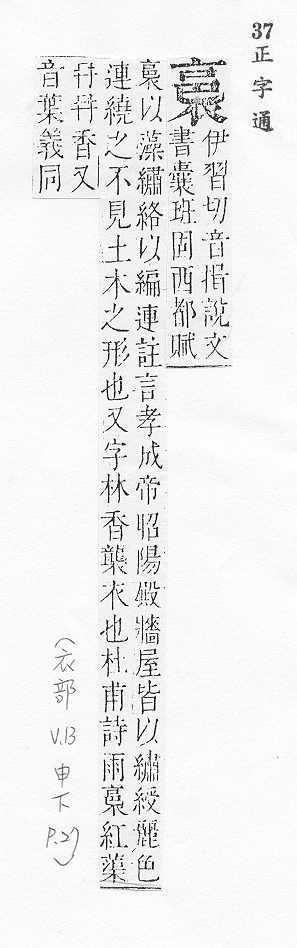 37 正字通
裛
伊習切音揖說文
書囊班固西都賦
裛以藻繡絡以編連註言孝成帝昭陽殿牆屋皆以繡綬麗色
連繞之不見土木之形也又字林香襲衣也杜甫詩雨裛紅蕖
冉冉香又
音葉義同
(衣部 V.13 申下 P.27)